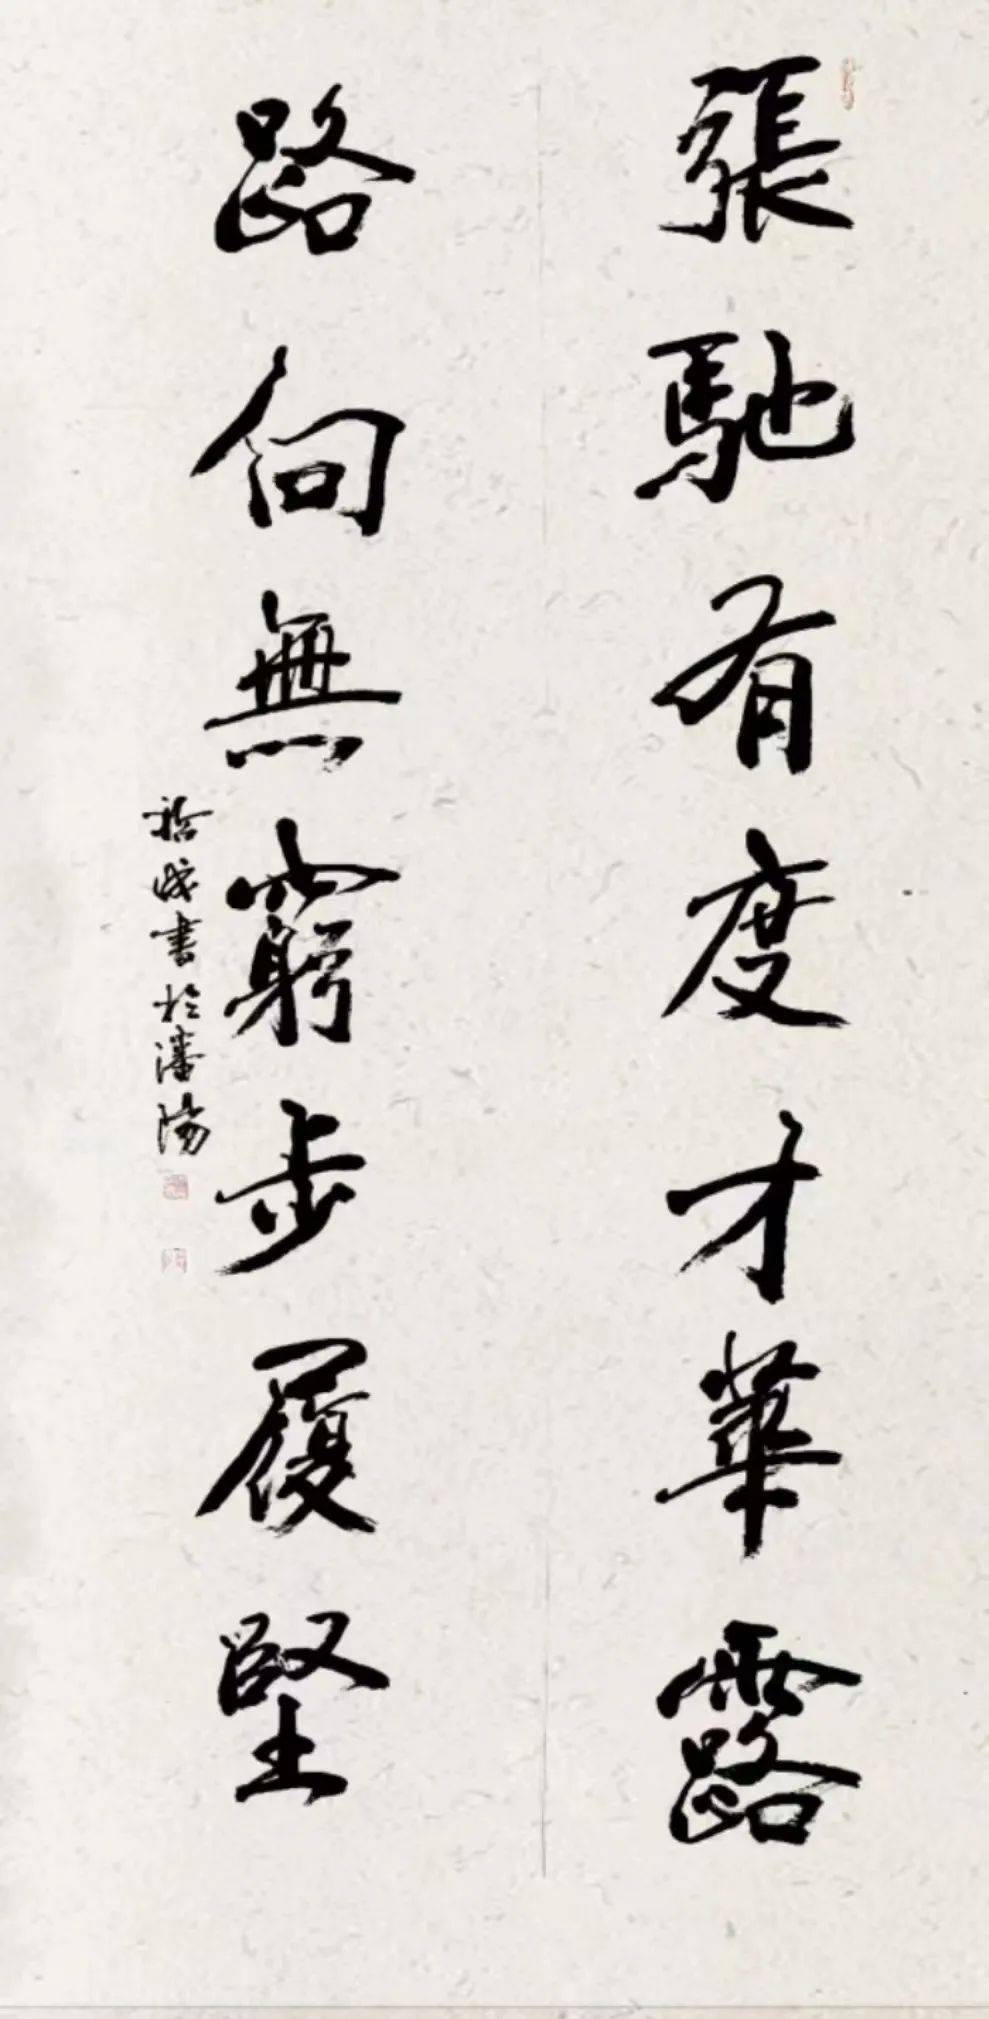 張馳有度才華露
路向無窮步履堅
書於瀋陽